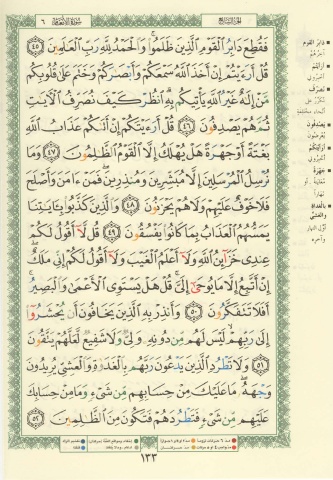 الجزء السابع
سورة الأنعام ٦
فَقُطِعَ دَابِرُ الْقَوْمِ الَّذِينَ ظَلَمُوا وَالْحَمْدُ لِلَّهِ رَبِّ الْعَالَمِينَ ٤٥
قُلْ أَرَءَيْتُمْ إِنْ أَخَذَ اللَّهُ سَمْعَكُمْ وَأَبْصَارَكُمْ وَخَتَمَ عَلَى قُلُوبِكُمْ
مَنْ إِلَهٌ غَيْرُ اللَّهِ يَأْتِيكُمْ بِهِ انْظُرْ كَيْفَ نُصَرِّفُ الْآيَاتِ
ثُمَّ هُمْ يَصْدِفُونَ ٤٦ قُلْ أَرَءَيْتَكُمْ إِنْ أَتَاكُمْ عَذَابُ اللَّهِ
بَغْتَةً أَوْ جَهْرَةً هَلْ يُهْلَكُ إِلَّا الْقَوْمُ الظَّالِمُونَ ٤٧ وَمَا
نُرْسِلُ الْمُرْسَلِينَ إِلَّا مُبَشِّرِينَ وَمُنْذِرِينَ فَمَنْ ءَامَنَ وَأَصْلَحَ
فَلَا خَوْفٌ عَلَيْهِمْ وَلَا هُمْ يَحْزَنُونَ ٤٨ وَالَّذِينَ كَذَّبُوا بِآيَاتِنَا
يَمَسُّهُمُ الْعَذَابُ بِمَا كَانُوا يَفْسُقُونَ ٤٩ قُلْ لَا أَقُولُ لَكُمْ
عِنْدِي خَزَائِنُ اللَّهِ وَلَا أَعْلَمُ الْغَيْبَ وَلَا أَقُولُ لَكُمْ إِنِّي مَلَكٌ
إِنْ أَتَّبِعُ إِلَّا مَا يُوحَى إِلَيَّ قُلْ هَلْ يَسْتَوِي الْأَعْمَى وَالْبَصِيرُ
أَفَلَا تَتَفَكَّرُونَ ٥٠ وَأَنْذِرْ بِهِ الَّذِينَ يَخَافُونَ أَنْ يُحْشَرُوا
إِلَى رَبِّهِمْ لَيْسَ لَهُمْ مِنْ دُونِهِ وَلِيٌّ وَلَا شَفِيعٌ لَعَلَّهُمْ يَتَّقُونَ
٥١ وَلَا تَطْرُدِ الَّذِينَ يَدْعُونَ رَبَّهُمْ بِالْغَدَاةِ وَالْعَشِيِّ يُرِيدُونَ
وَجْهَهُ مَا عَلَيْكَ مِنْ حِسَابِهِمْ مِنْ شَيْءٍ وَمَا مِنْ حِسَابِكَ
عَلَيْهِمْ مِنْ شَيْءٍ فَتَطْرُدَهُمْ فَتَكُونَ مِنَ الظَّالِمِينَ ٥٢
دابر القوم
آخرهم
أرأيتم
أخبروني
نصرف
يصدفون
أرأيتكم
أخبروني
جهرة
بالغداة
والعشي
أول النهار
وآخره
١٣٣